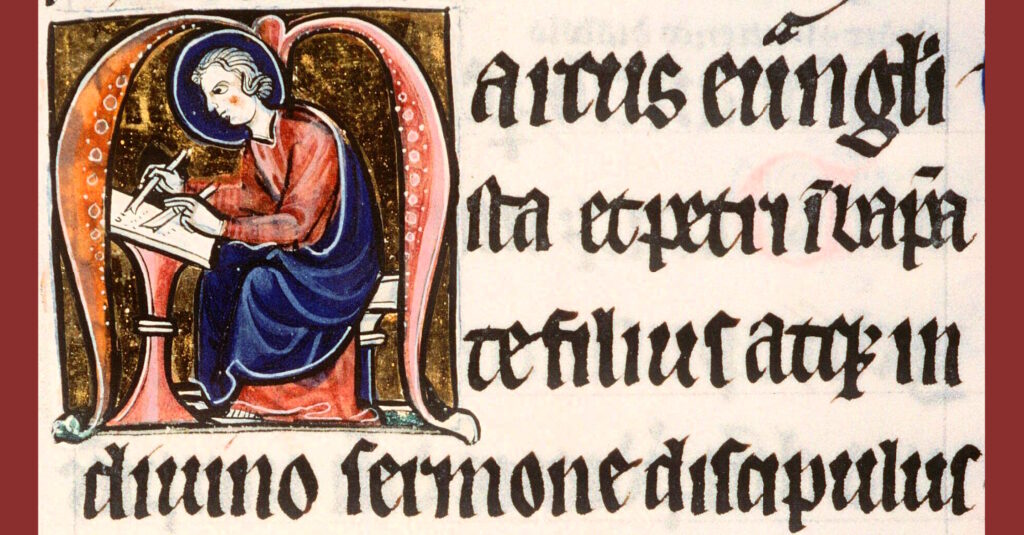 Marcus euͣngl̄i
ſta et petri ī bap̄a
te filiuſ atqꝫ in
diuino ſermone diſcipuluſ